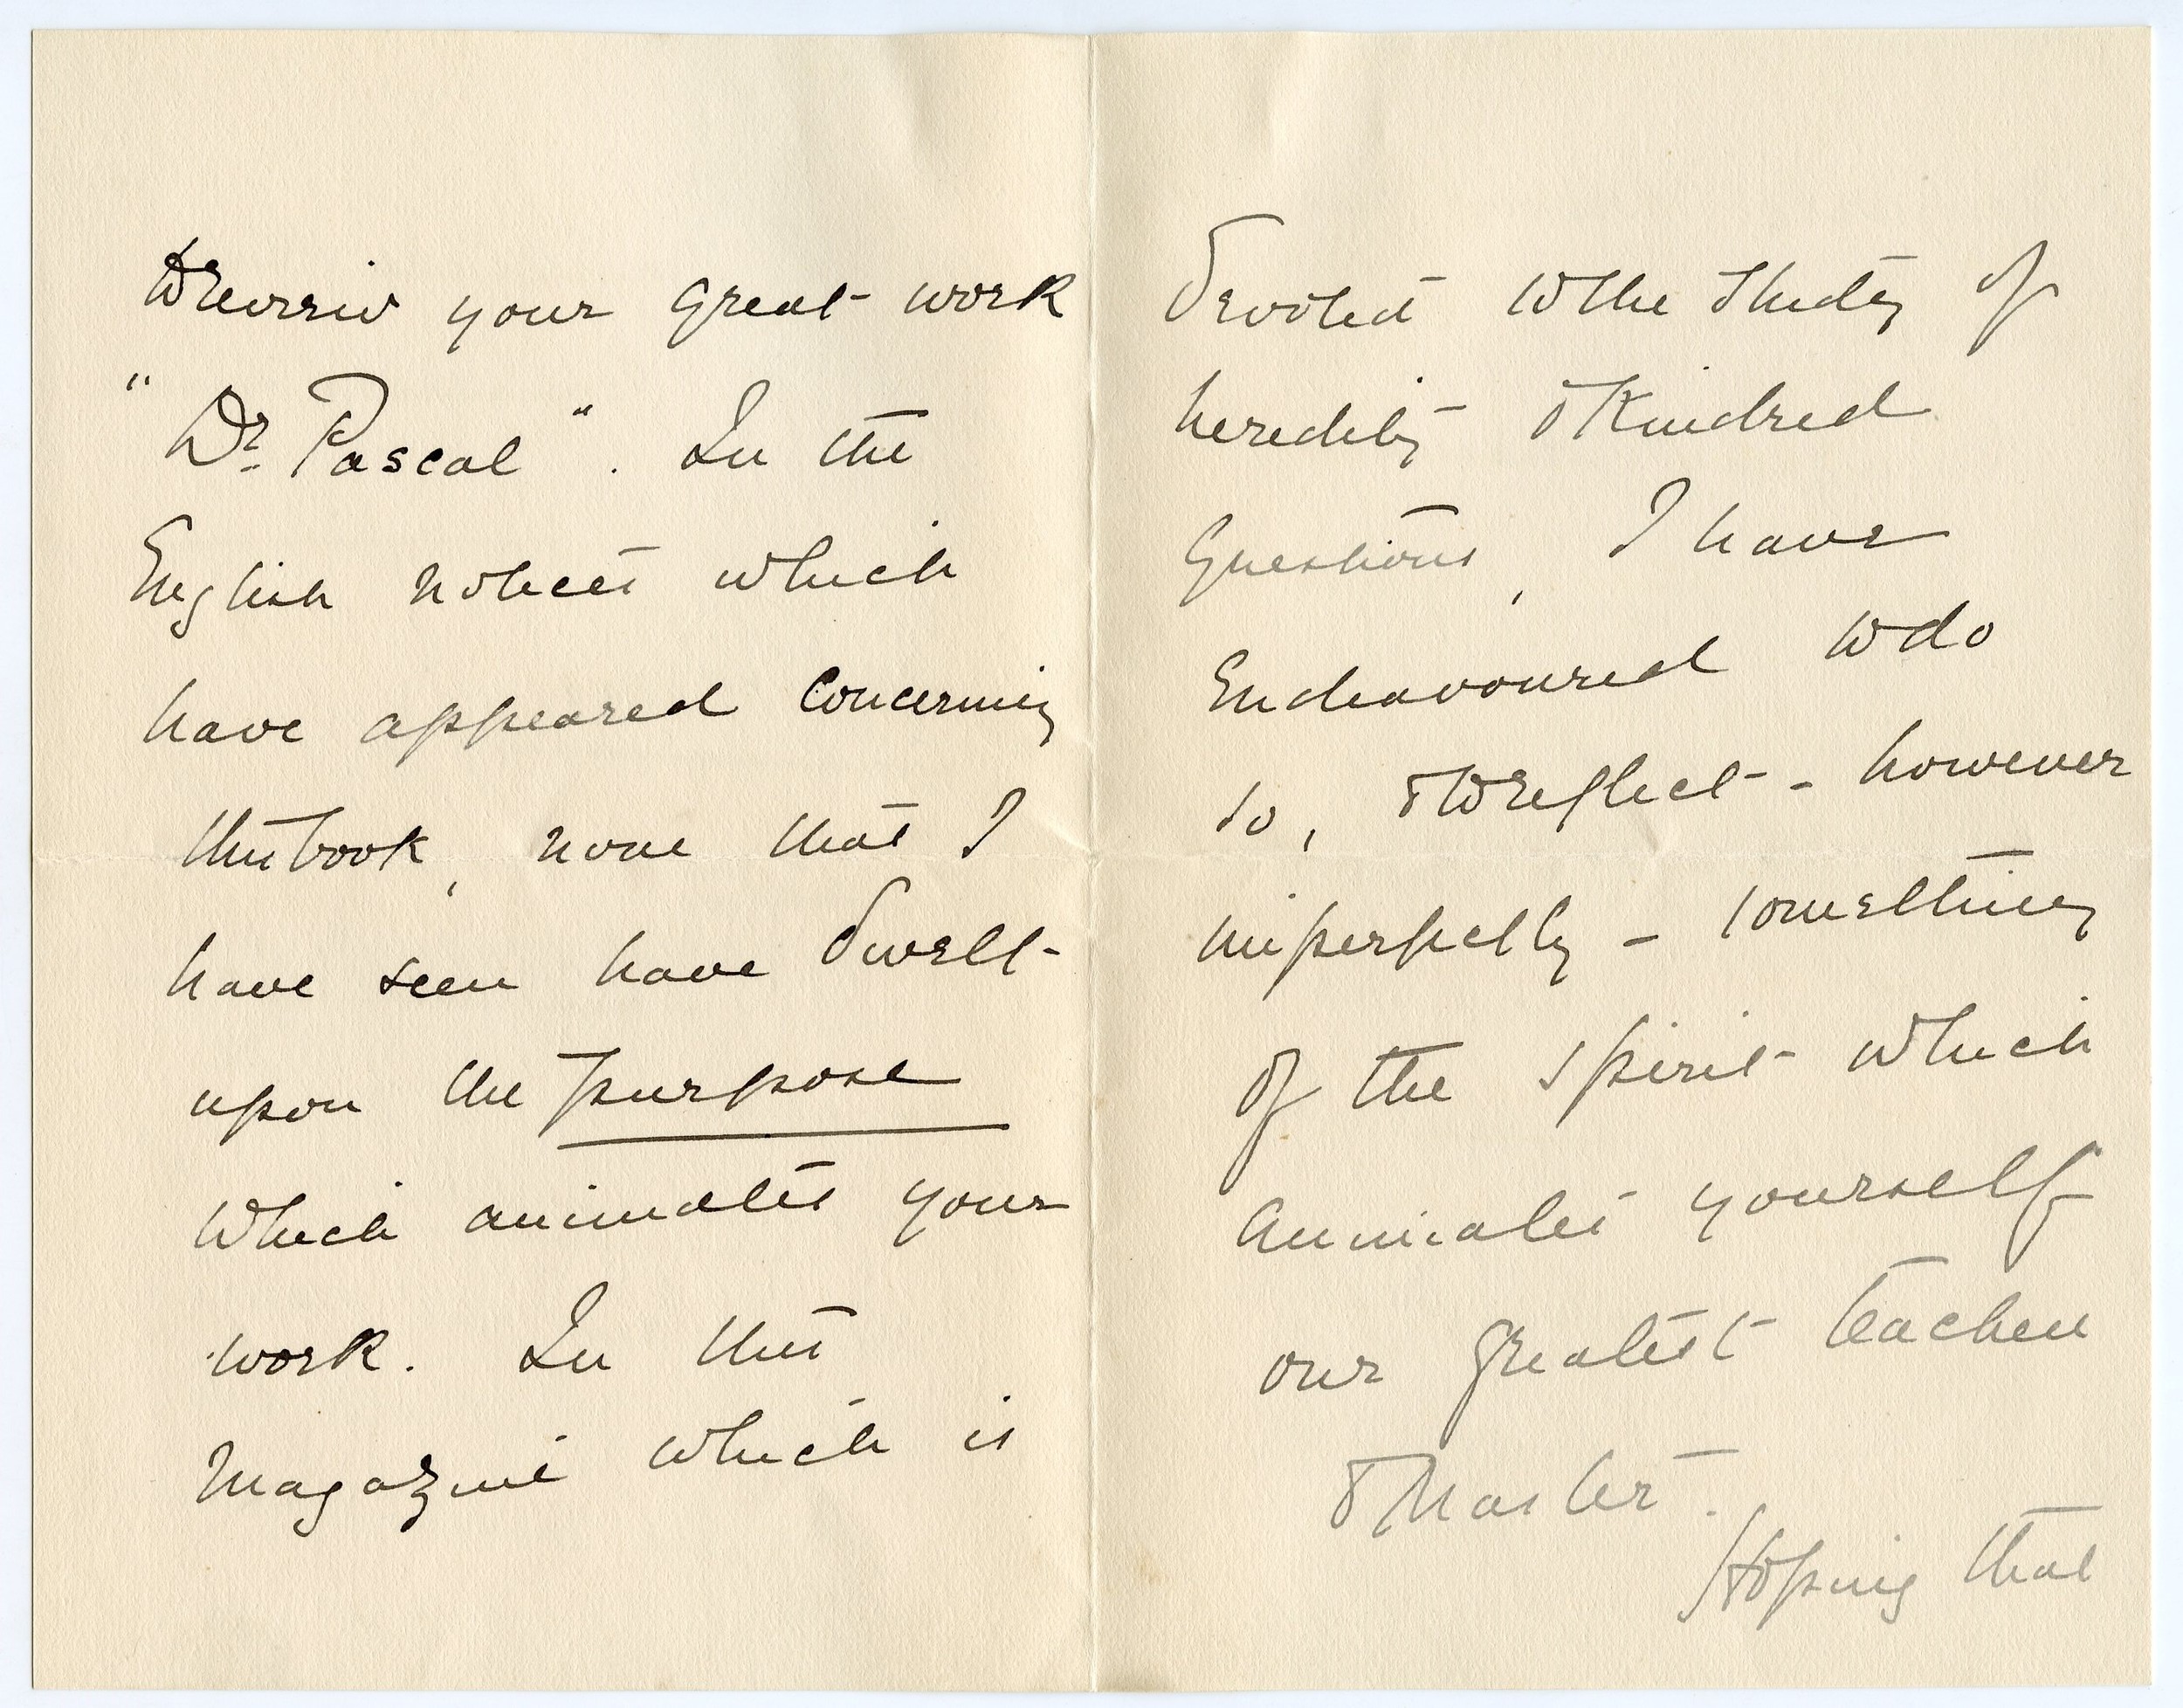 to review your great work
"Dr. Pascal". In the
English notices which
have appeared concerning
this book, none that I
have seen have dwelt
upon the purpose
which animates your
work. In this
magazine which is
devoted to the study of
heredity & kindred
questions, I have
endeavoured to do
so, & to reflect - however
imperfectly - something
of the spirit which
animates yourself
our greatest teacher
& Master.
Hoping that